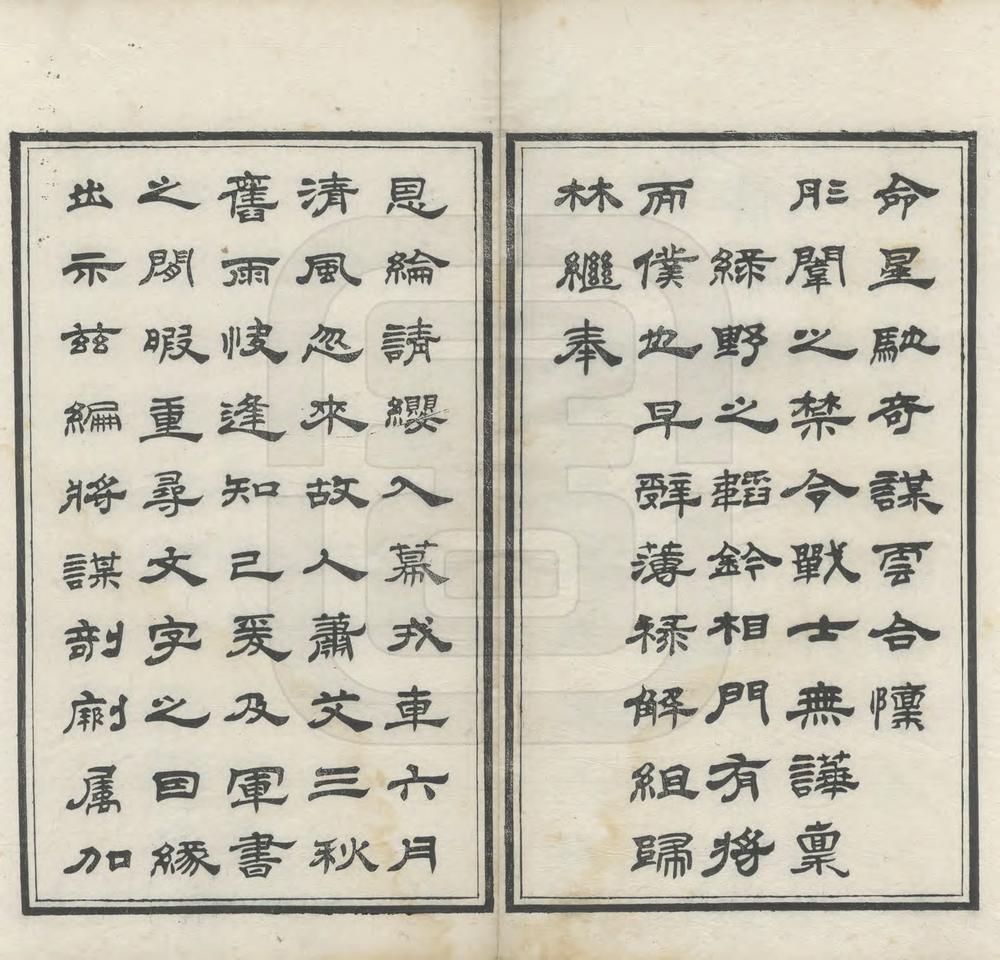 命星馳奇謀雲合懍
彤闈之禁令戰士無譁稟
綠野之韜鈐相門有將
而僕也早辭薄祿解組歸
林繼奉
恩綸請纓入幕戎車六月
清風忽來故人蕭艾三秋
舊雨快逢知己爰及軍書
之閒暇重尋文字之因緣
出示茲編將謀剞劂屬加